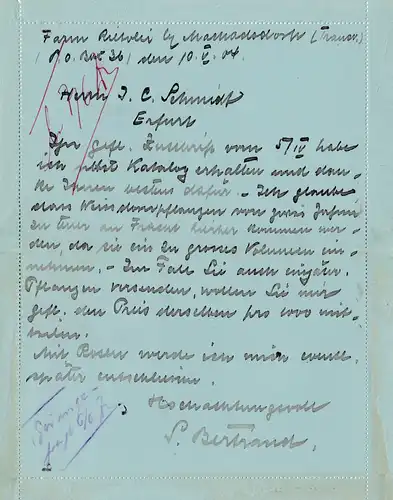 Farm Rietvlei by Machadodorp (Transv.)
P.O. Box 36, den 10. V. 04.
Herrn J. C. Schmidt
Erfurt
Ihre gefl. Zuschrift vom 5/IV habe
ich nebst Katalog erhalten und dan-
ke Ihnen bestens dafür. - Ich glaube
dass Weissdornpflanzen von zwei Jahren
zu teuer an Fracht hierher kommen wer-
den, da sie ein zu grosses Volumen ein-
nehmen. - Im Falle Sie auch einjähr.
Pflanzen versenden, wollen Sie mir
gefl. den Preis derselben pro 1000 mit-
teilen.
Mit Rosen werde ich mich event.
später entschliessen.
Hochachtungsvoll
S. Bertrand.